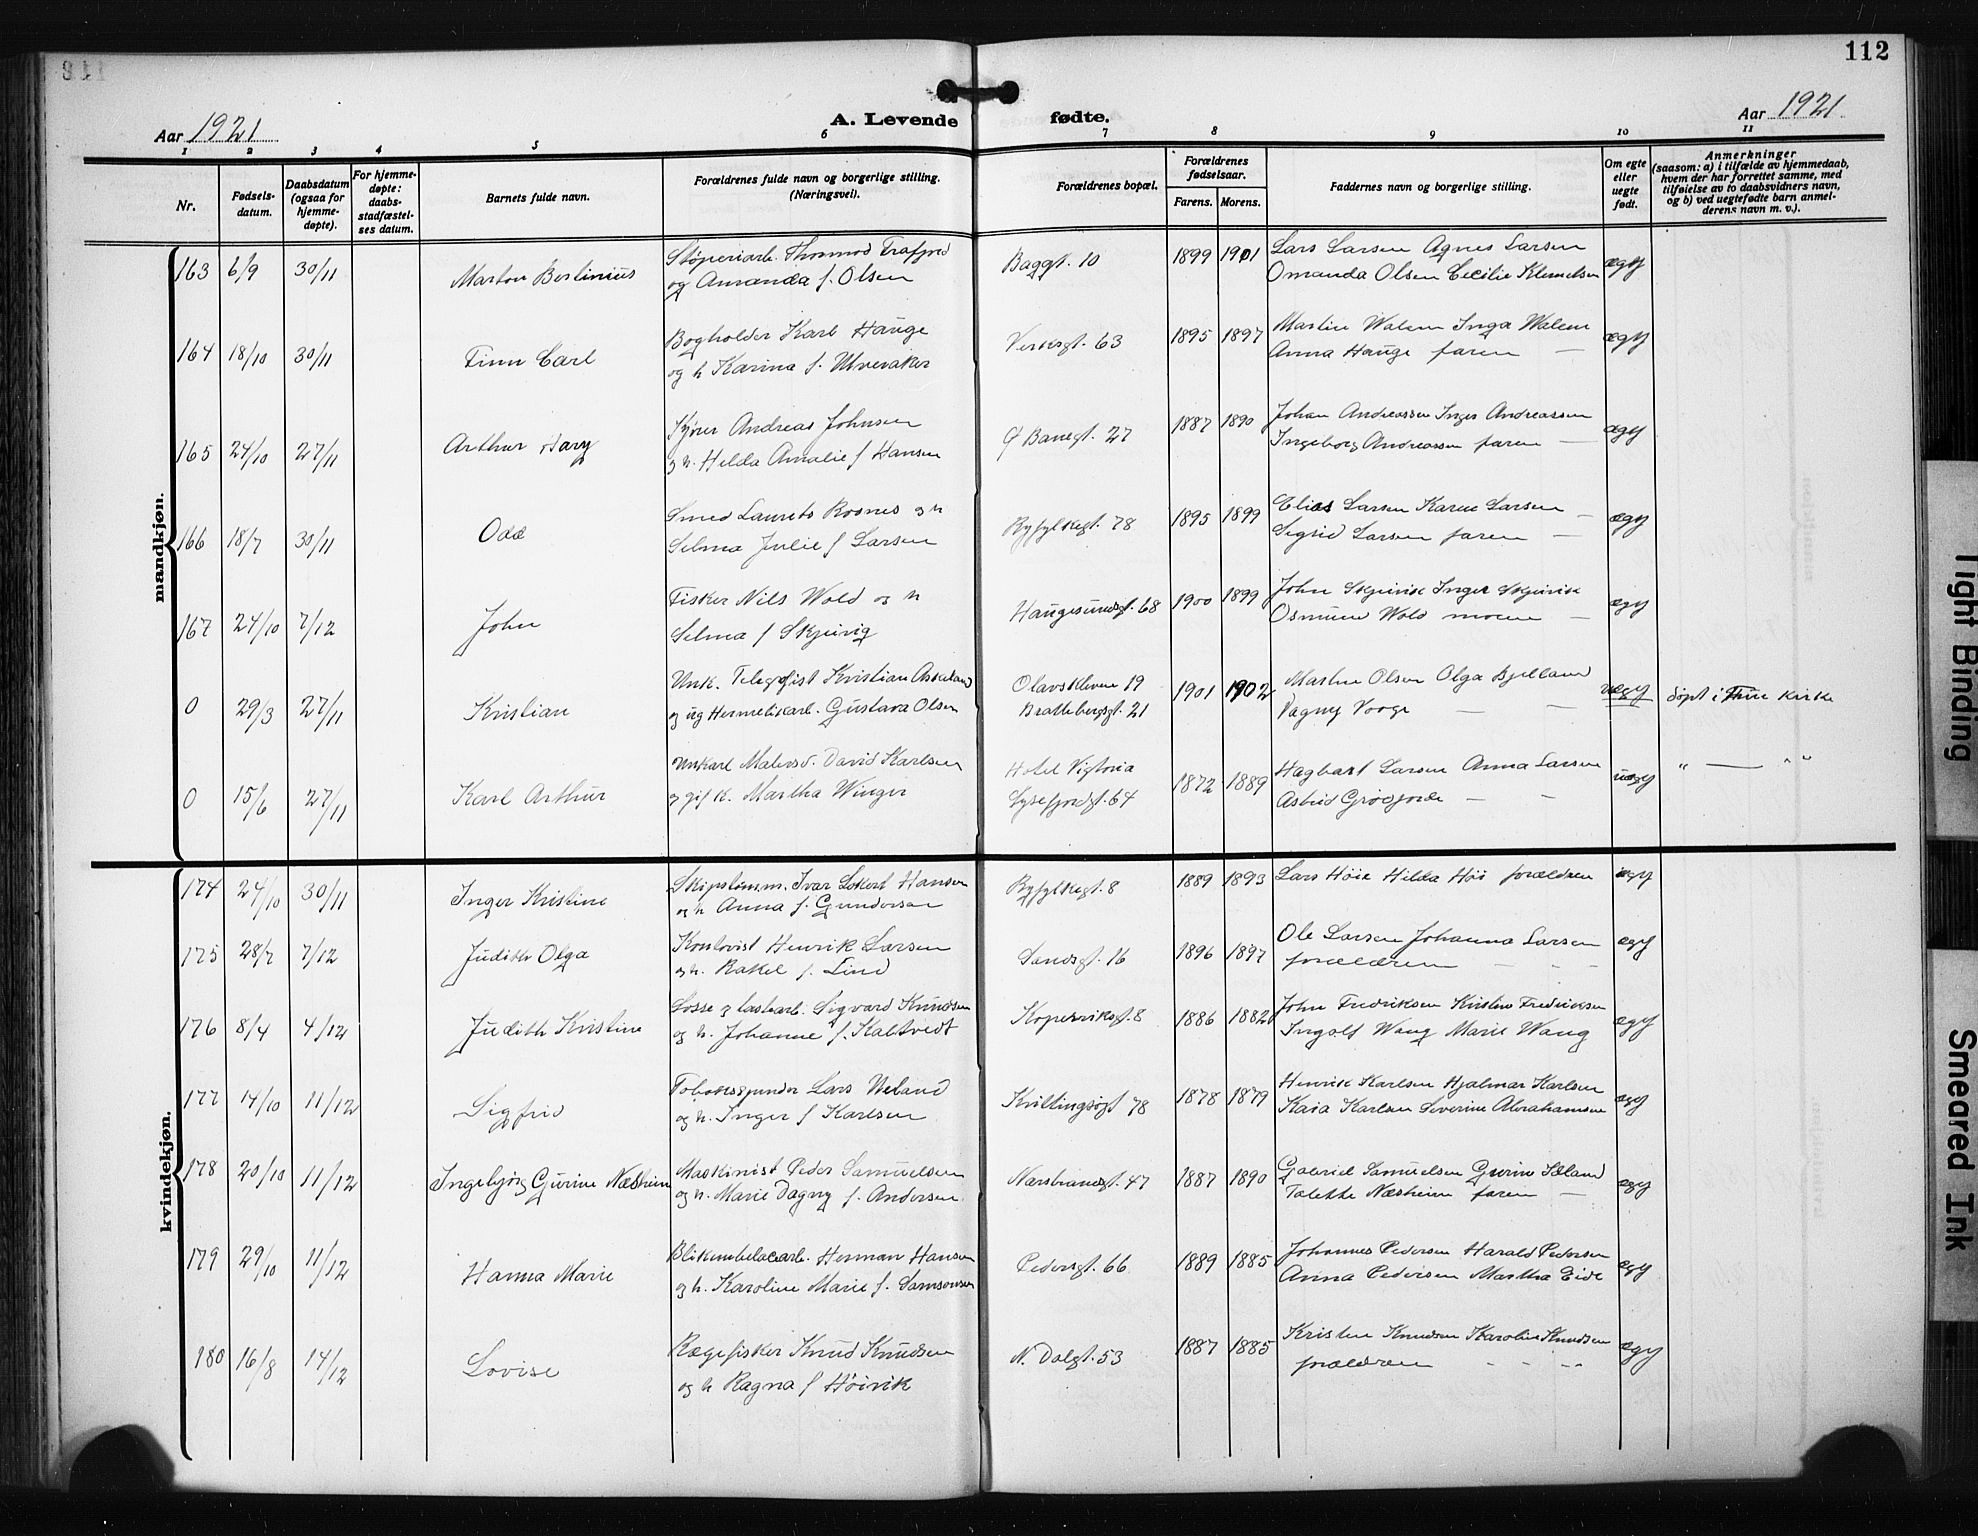 112
Aar 1921
A. Levende fødte.
Aar 1921
1 2 3 4 5 6 7 8 9 10 11
Nr.
Fødsels-
datum.
Daabsdatum
(ogsaa for
hjemme-
døpte).
For hjemme-
døpte:
daabs-
stadfæstel-
ses datum.
Barnets fulde navn.
Forældrenes fulde navn og borgerlige stilling.
(Næringsvei).
Forældrenes bopæl.
Forældrenes
fødselsaar.
Farens. Morens.
Faddernes navn og borgerlige stilling.
Om egte
eller
uegte
født.
Anmerkninger
(saasom: a) i tilfælde av hjemmedaab,
hvem der har forrettet samme, med
tilføielse av to daabsvidners navn,
og b) ved uegtefødte barn anmel-
derens navn m. v.).
mandkjøn.
163 6/9 30/11 Marton Bertinius
Støperiarb. Thormod Trafjord
og Amanda f. Olsen
Baggt. 10 1899 1901
Lars Larsen Agnes Larsen
Omanda Olsen Cecilie Klemetsen
ægt
164 18/10 30/11 Finn Carl
Bogholder Karl Hauge
og h Karina f.
Verksgt. 63 1895 1897
Martin Walem Inga Walem
Anna Hauge faren —
ægt
165 24/10 27/11 Arthur
Kjører Andreas Johnsen
og h. Hilda Amalie f Hansen
Ø Banegt. 27 1887 1890
Johan Andreassen Inger Andreassen
Ingeborg Andreassen faren —
ægt
166 18/7 30/11 Odd
Smed Laurits Rosnes og h
Selma Julie f Larsen
Ryfylkegt. 78 1895 1899
Elias Larsen Karen Larsen —
Sigrid Larsen faren —
ægt
167 24/10 7/12 John
Fisker Nils Wold og h
Selma f Skjeivig
Haugesundsgt. 68 1900 1899
John Skjeivik Inger Skjeivik
Osmund Wold moren —
ægt
0 29/3 27/11 Kristian
Unk. Telegrafist Kristian
og ug Hermetikarb. Gustava Olsen
Olavskleven 19
Brattebergsgt. 21
1901 1902
Martin Olsen Olga Bjelland
Dagny Vorge — —
uægt døpt i Frue kirke
0 15/6 27/11 Karl Arthur
Unkarl Malersv. David Karlsen
og gift k. Martha Winger
Hotel Vigtoria
Lysefjordgt. 64
1872 1889
Hagbart Larsen Anna Larsen
Astrid Grødfjorde — —
uægt " — " "
kvindekjøn.
174 24/10 30/11 Inger Kristine
Skipstømm. Ivar Lokert Hansen
og h Anna f. Gundersen
Ryfylkegt. 8 1889 1893
Lars Höie Hilda Höi forældren
ægt
175 28/7 7/12 Judith Olga
Kontorist Henrik Larsen
og h. Rakel f. Lind
Sandsgt. 16 1896 1897
Ole Larsen Johanna Larsen
forældren — - -
ægt
176 8/4 4/12 Judith Kristine
Losse og lastearb. Sigvard Knudsen
og h. Johanne f. Kaltvedt
Kopervikgt. 8 1886 1882
John Fredriksen Kirstine Fredriksen
Ingolf Wang Marie Wang
ægt
177 14/10 11/12 Sigfrid
Tobaksspinder Lars Ueland
og h. Inger f Karlsen
Kvittingsøgt 78 1878 1879
Henrik Karlsen Hjalmar Karlsen
Kaia Karlsen Severine Abrahamsen
ægt
178 20/10 11/12 Ingebjørg Gurine Næsheim
Maskinist Peder Samuelsen
og h. Marie Dagny f. Andersen
Nærstrandgt. 47 1887 1890
Gabriel Samuelsen Gurine Sæland
Talette Næsheim faren —
ægt
179 29/10 11/12 Hanna Marie
Blikembalagearb. Herman Hansen
og h. Karoline Marie f. Samsonsen
Pedersgt. 66 1889 1885
Johannes Pedersen Harald Pedersen
Anna Pedersen Martha Eide
ægt
180 16/8 14/12 Lovise
Rægefisker Knud Knudsen
og h Ragna f Höivik
N. Dalgt. 53 1887 1885
Kristen Knudsen Karoline Knudsen
forældren - - - -
ægt
Tight Binding
Smeared Ink